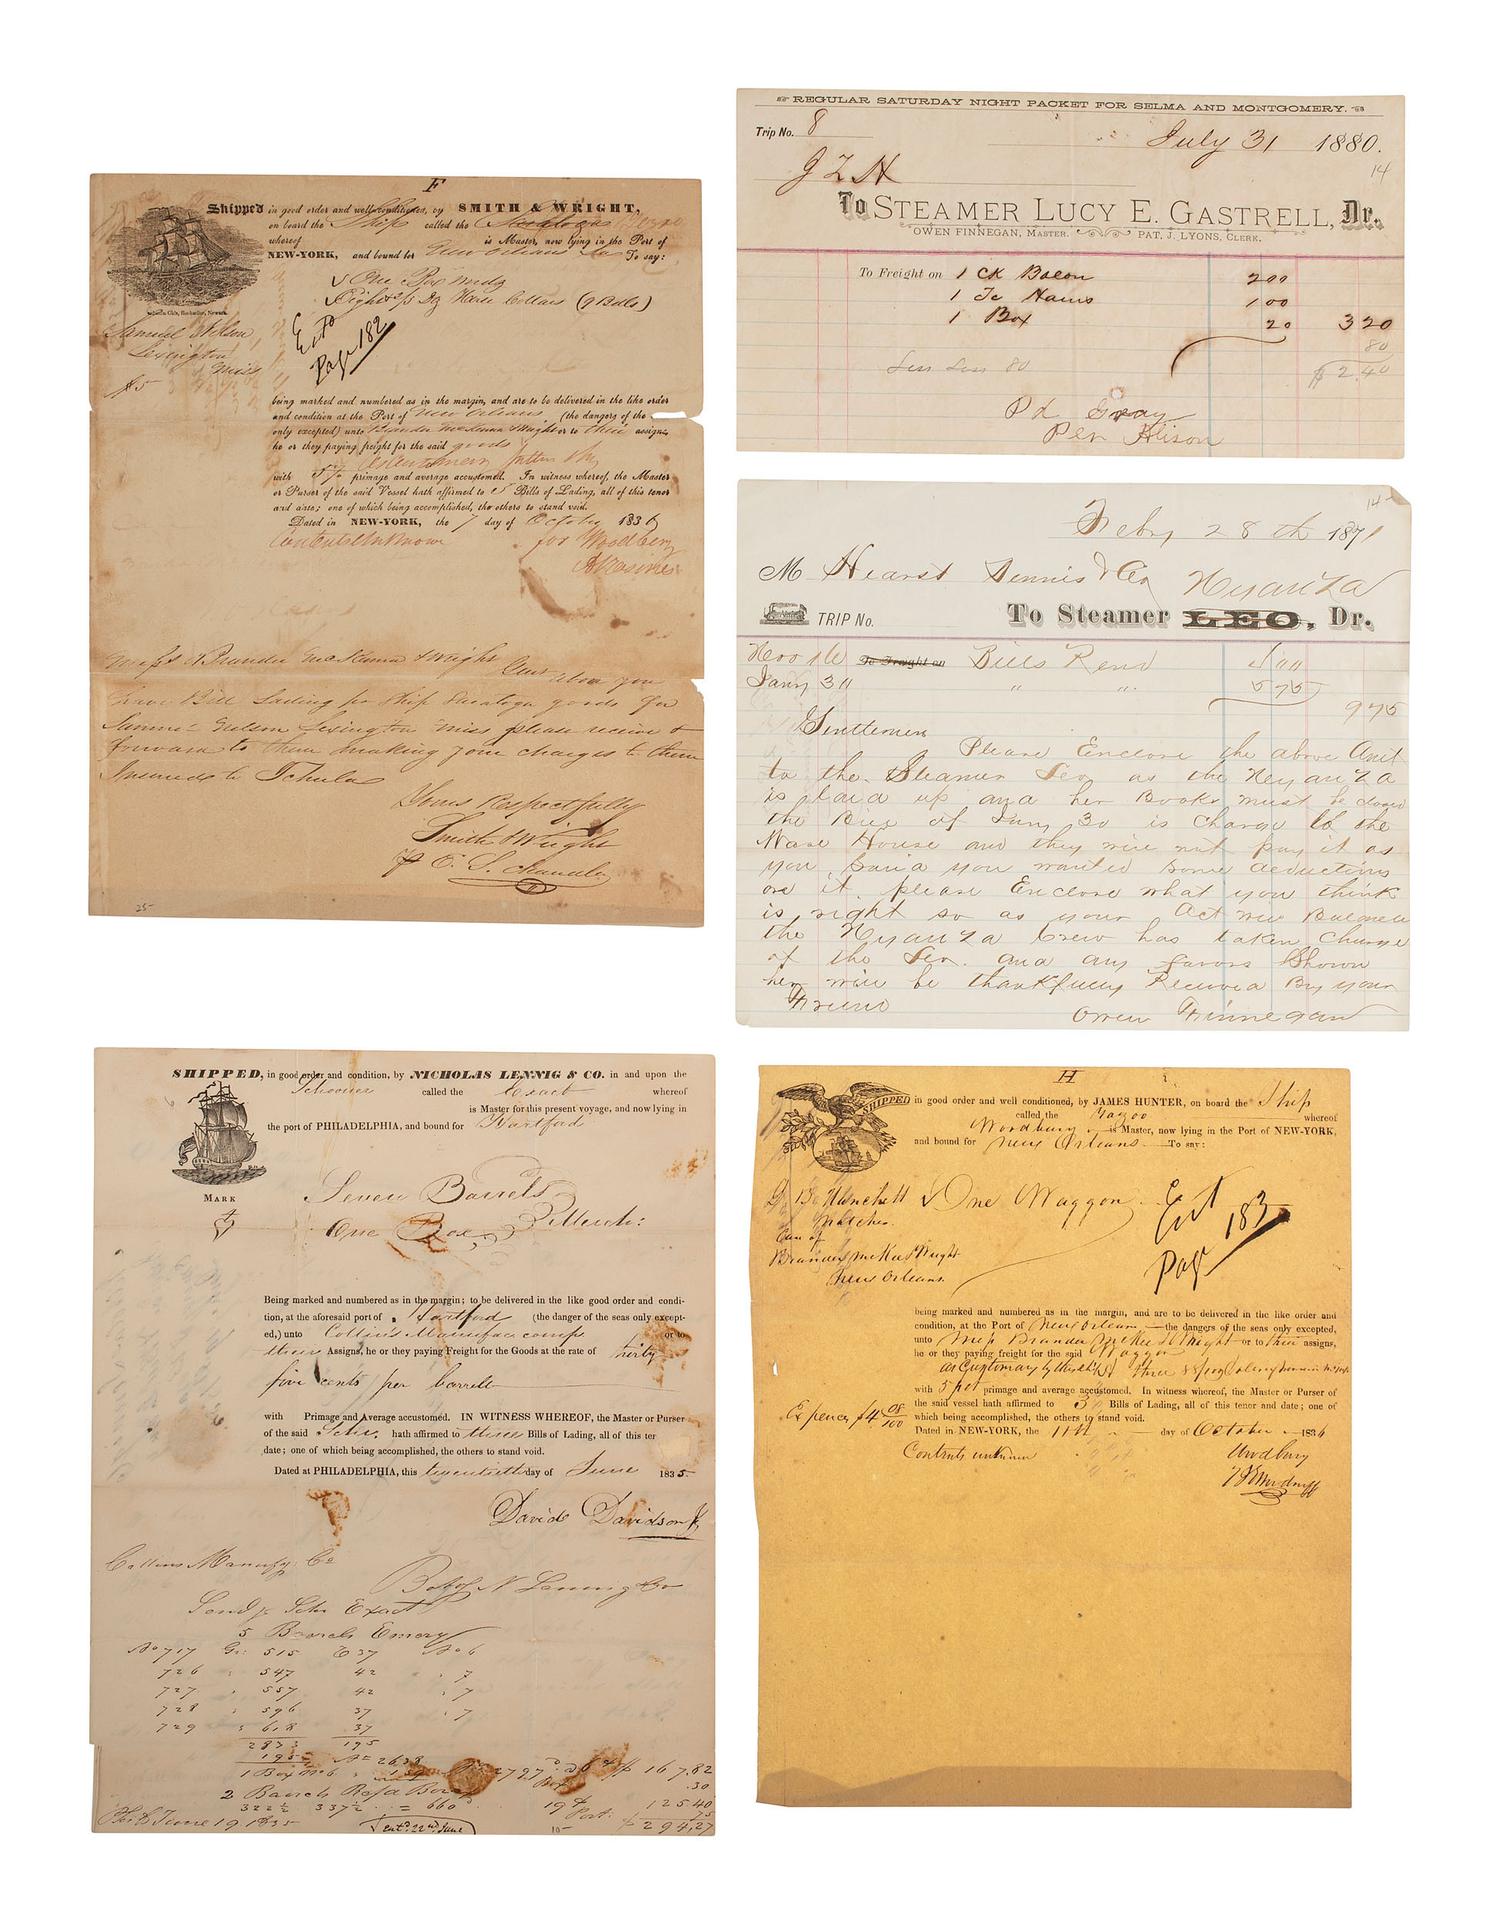 F
Shipped in good order and well conditioned, by SMITH & WRIGHT,
on board the Ship called the Saratoga
whereof is Master, now lying in the Port of
NEW-YORK, and bound for New Orleans To say:
One Box
Eight Dz Horse Collars (9 Bals)
Ent
Page 182
Samuel Nelson
Lexington
Miss
$5
being marked and numbered as in the margin, and are to be delivered in the like order
and condition at the Port of New Orleans (the dangers of the
only excepted) unto Brander McKenna & Wright or to their assigns
he or they paying freight for the said goods
with 5% primage and average accustomed. In witness whereof, the Master
or Purser of the said Vessel hath affirmed to Bills of Lading, all of this tenor
and date; one of which being accomplished, the others to stand void.
Dated in NEW-YORK, the 7 day of October 1836
Contents Unknown for Woodbery
Messrs Brander McKenna & Wright
Above you
have Bill Lading pr Ship Saratoga goods for
Nelson Lexington Miss please receive &
forward to them making your charges to them
Insured to Tchula
Yours Respectfully
Smith & Wright
25-
REGULAR SATURDAY NIGHT PACKET FOR SELMA AND MONTGOMERY.
Trip No. 8
July 31 1880.
14
J Z H
To STEAMER LUCY E. GASTRELL, Dr.
OWEN FINNEGAN, MASTER. PAT. J. LYONS, CLERK.
To Freight on 1 CK Bacon 200
1 Tc Hams 100
1 Box 20 320
80
Less 80 $2.40
Pd Gray
Per Alison
14-
Feby 28th 1871
M Hearst Dennis & Co Nyanza
TRIP No. To Steamer LEO, Dr.
To Freight on Bills Rend 400
Jany 30 " " 575
975
Gentlemen
Please Enclose the above Amt
to the Steamer Leo as the Nyanza
is laid up and her Books must be closed
the Bill of Jany 30 is charge to the
Ware House and they will not pay it as
you said you wanted some deductions
on it. please Enclose what you think
is right so as your Act will Balance
the Nyanza Crew has taken charge
of the Leo. and any favors Shown
her will be thankfully Received By your
Friend Owen Finnegan
SHIPPED, in good order and condition, by NICHOLAS LENNIG & CO. in and upon the
Schooner called the Exact whereof
is Master for this present voyage, and now lying in
the port of PHILADELPHIA, and bound for Hartford
MARK
Seven Barrels
One Box Merch:
Being marked and numbered as in the margin; to be delivered in the like good order and condi-
tion, at the aforesaid port of Hartford (the danger of the seas only except-
ed,) unto Collins Manufac comp or to
their Assigns, he or they paying Freight for the Goods at the rate of thirty
five cents per barrel
with Primage and Average accustomed. IN WITNESS WHEREOF, the Master or Purser
of the said Schr. hath affirmed to three Bills of Lading, all of this ter
date; one of which being accomplished, the others to stand void.
Dated at PHILADELPHIA, this twentieth day of June 1835.
David Davidson Jr
Collins Manufg Co
Bot of N Lennig & Co
Send pr Schr Exact
5 Barrels Emery
No 717 Gr: 515 37 No 6
726 547 42 7
727 557 42 7
728 596 37 7
729 618 37
2833 195
195 2638
1 Box No 6 2797 $ 167,82
Box .30
2 Barrels Refd Borax
322½ 337½ = 660 19 125.40
Port: 75
Phila June 19 1835 $ 294,27
ent. 22nd June
10-
H
SHIPPED in good order and well conditioned, by JAMES HUNTER, on board the Ship
called the Yazoo whereof
Woodbury is Master, now lying in the Port of NEW-YORK,
and bound for New Orleans To say:
Hanchett One Waggon
Natches.
Care of
Brander McKee & Wright
New Orleans.
Ent
Page 183
being marked and numbered as in the margin, and are to be delivered in the like order and
condition, at the Port of New Orleans the dangers of the seas only excepted,
unto Mess Brander McKee & Wright or to their assigns,
he or they paying freight for the said Waggon
as Customary
with 5 pct primage and average accustomed. In witness whereof, the Master or Purser of
the said vessel hath affirmed to 3 Bills of Lading, all of this tenor and date; one of
which being accomplished, the others to stand void.
Expences $4 08/100
Dated in NEW-YORK, the 11th day of October 1836
Contents unknown Woodbury